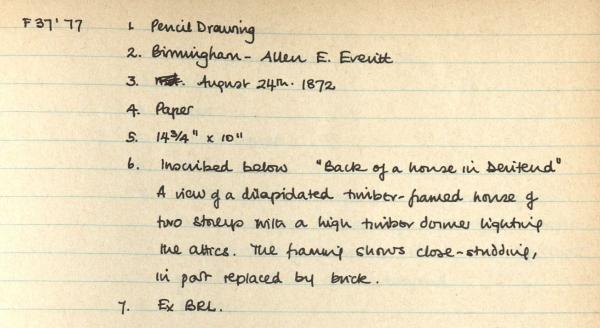 F37'77
1. Pencil Drawing
2. Birmingham - Allen E. Everitt
3. August 24th. 1872
4. Paper
5. 14 3/4" x 10"
6. Inscribed below "Back of a house in Deritend"
A view of a dilapidated timber-framed house of
two storeys with a high timber dormer lighting
the attics. The framing shows close-studding,
in part replaced by brick.
7. Ex BRL.